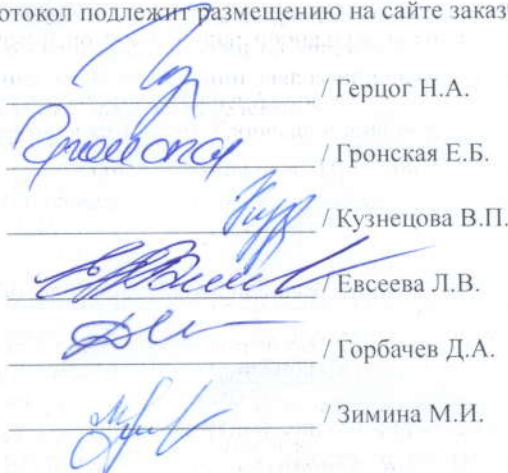 отокол подлежит размещению на сайте заказ
/ Герцог Н.А.
/ Гронская Е.Б.
/ Кузнецова В.П.
/ Евсеева Л.В.
/ Горбачев Д.А.
/ Зимина М.И.